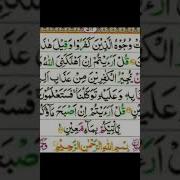 وُجُوهُ الَّذِيْنَ كَفَرُوْا وَقِيْلَ هٰذَا
قُلْ اَرَءَيْتُمْ اِنْ اَهْلَكَنِيَ اللّٰهُ
يُّجِيْرُ الْكٰفِرِيْنَ مِنْ عَذَابٍ
وَعَلَيْهِ تَوَكَّلْنَا فَسَتَعْلَمُوْ
قُلْ اَرَءَيْتُمْ اِنْ اَصْبَحَ مَا
يَّاْتِيْكُمْ بِمَآءٍ مَّعِيْنٍ
بِسْمِ اللّٰهِ الرَّحْمٰنِ الرَّحِيْمِ